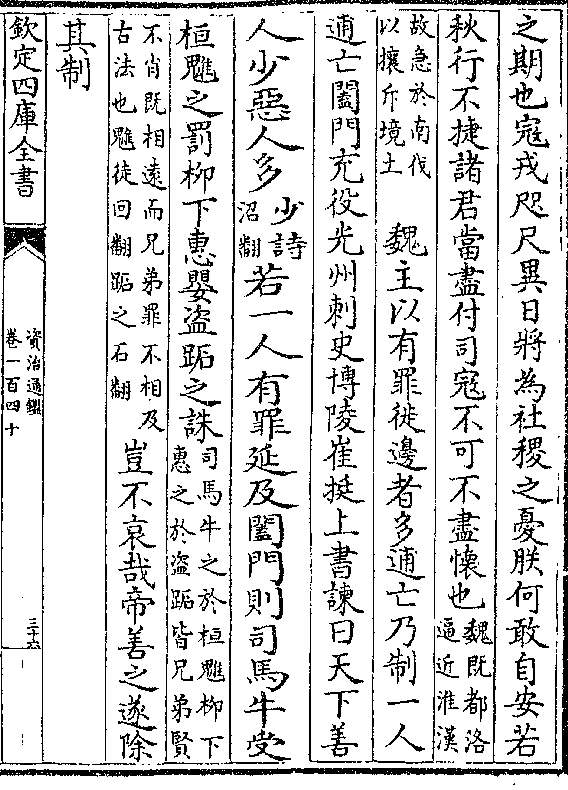 之期也寇戎咫尺異日將為社稷之憂朕何敢自安若
秋行不捷諸君當盡付司寇不可不盡懷也魏既都洛逼近淮漢
故急於南伐以攘斥境土 魏主以有罪徙邊者多逋亡乃制一人
逋亡闔門充役光州刺史博陵崔挺上書諫曰天下善
人少惡人多少詩沼翻若一人有罪延及闔門則司馬牛受
桓魋之罰柳下惠嬰盜跖之誅司馬牛之於桓魋柳下惠之於盜跖皆兄弟賢
不肖既相遠而兄弟罪不相及古法也魋徒回翻跖之石翻豈不哀哉帝善之遂除
其制
欽定四庫全書
資治通鑑
卷一百四十
三十六